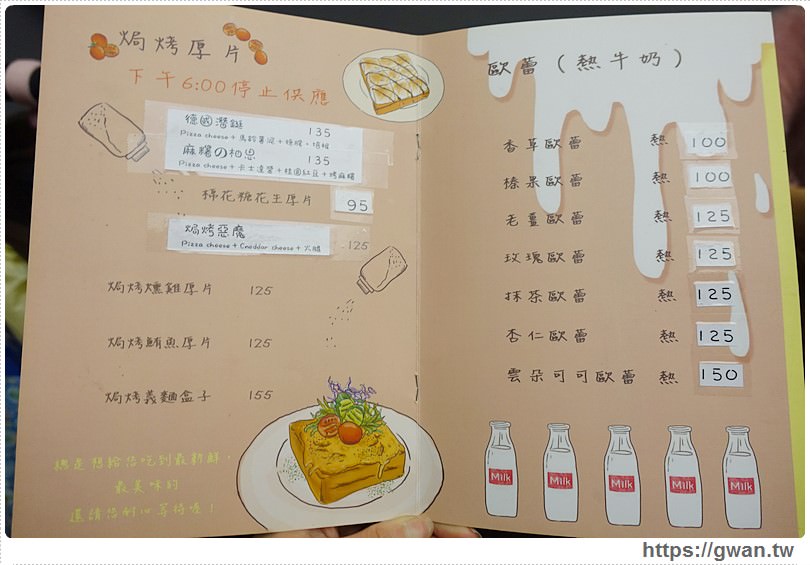 焗烤厚片
下午6:00停止供應
德國潛艇 135
Pizza cheese+馬鈴薯泥+德腸、培根
麻糬の相思 135
Pizza cheese+卡士達醬+桂圓紅豆+烤麻糬
棉花糖花生厚片 95
焗烤惡魔
Pizza cheese+Cheddar cheese+火腿 125
焗烤燻雞厚片 125
焗烤鮪魚厚片 125
焗烤義麵盒子 155
總是想給您吃到最新鮮、
最美味的
還請您耐心等待喔!
歐蕾(熱牛奶)
香草歐蕾 熱 100
榛果歐蕾 熱 100
老薑歐蕾 熱 125
玫瑰歐蕾 熱 125
抹茶歐蕾 熱 125
杏仁歐蕾 熱 125
雲朵可可歐蕾 熱 150
Milk Milk Milk Milk Milk
https://gwan.tw